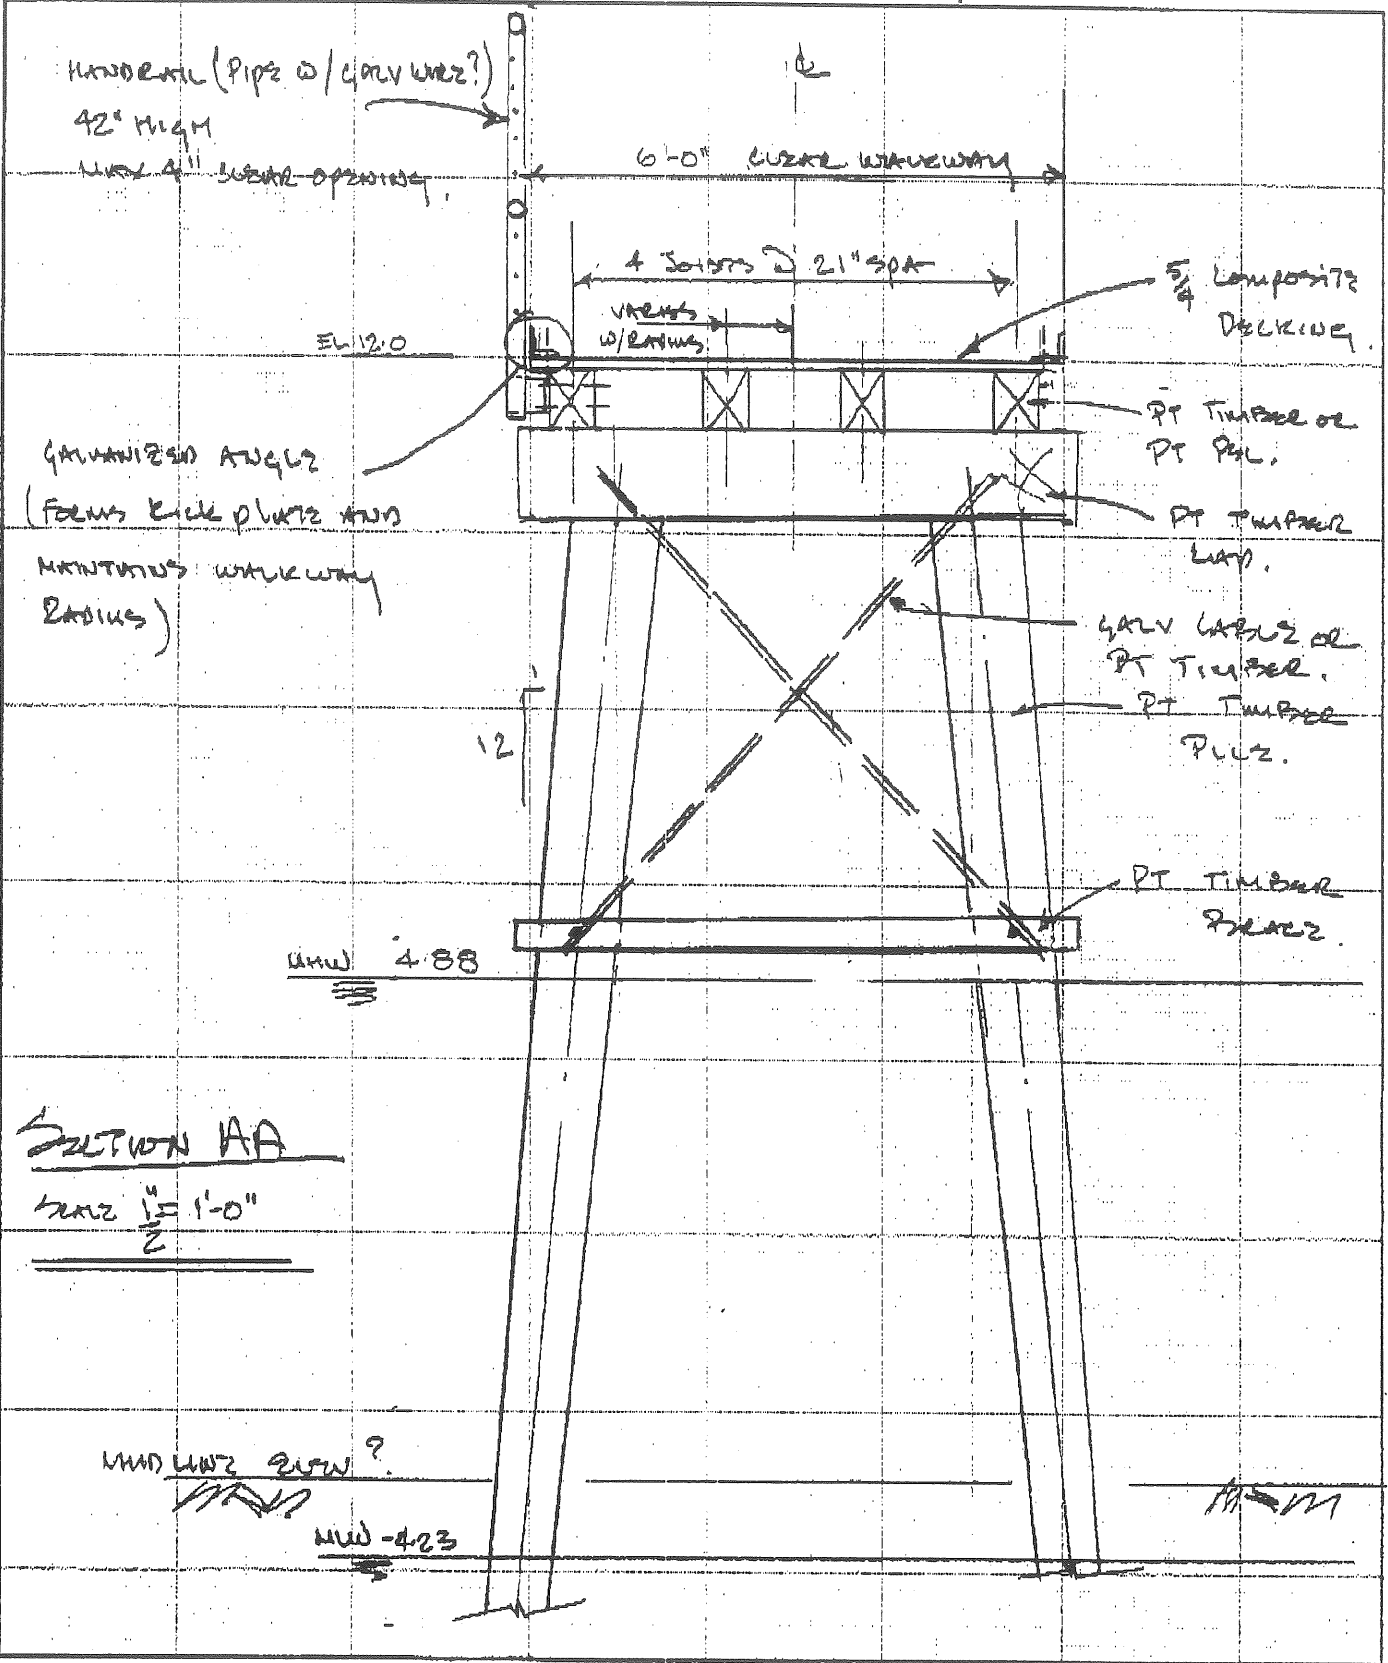 HANDRAIL (PIPE W/ GALV WIRE?)
42" HIGH
MAX 4" CLEAR OPENING.
℄
6'-0" CLEAR WALKWAY
4 JOISTS @ 21" SPA
VARIES
W/RADIUS
5/4 COMPOSITE
DECKING.
EL 12.0
PT TIMBER OR
PT PSL.
GALVANIZED ANGLE
(FORMS KICK PLATE AND
MAINTAINS WALKWAY
RADIUS)
PT TIMBER
GALV CABLE OR
PT TIMBER.
PT TIMBER
PILE.
1
12
PT TIMBER
BRACE.
MHW 4.88
SECTION AA
SCALE 1/2" = 1'-0"
MUD LINE ELEV ?
MLW -4.23